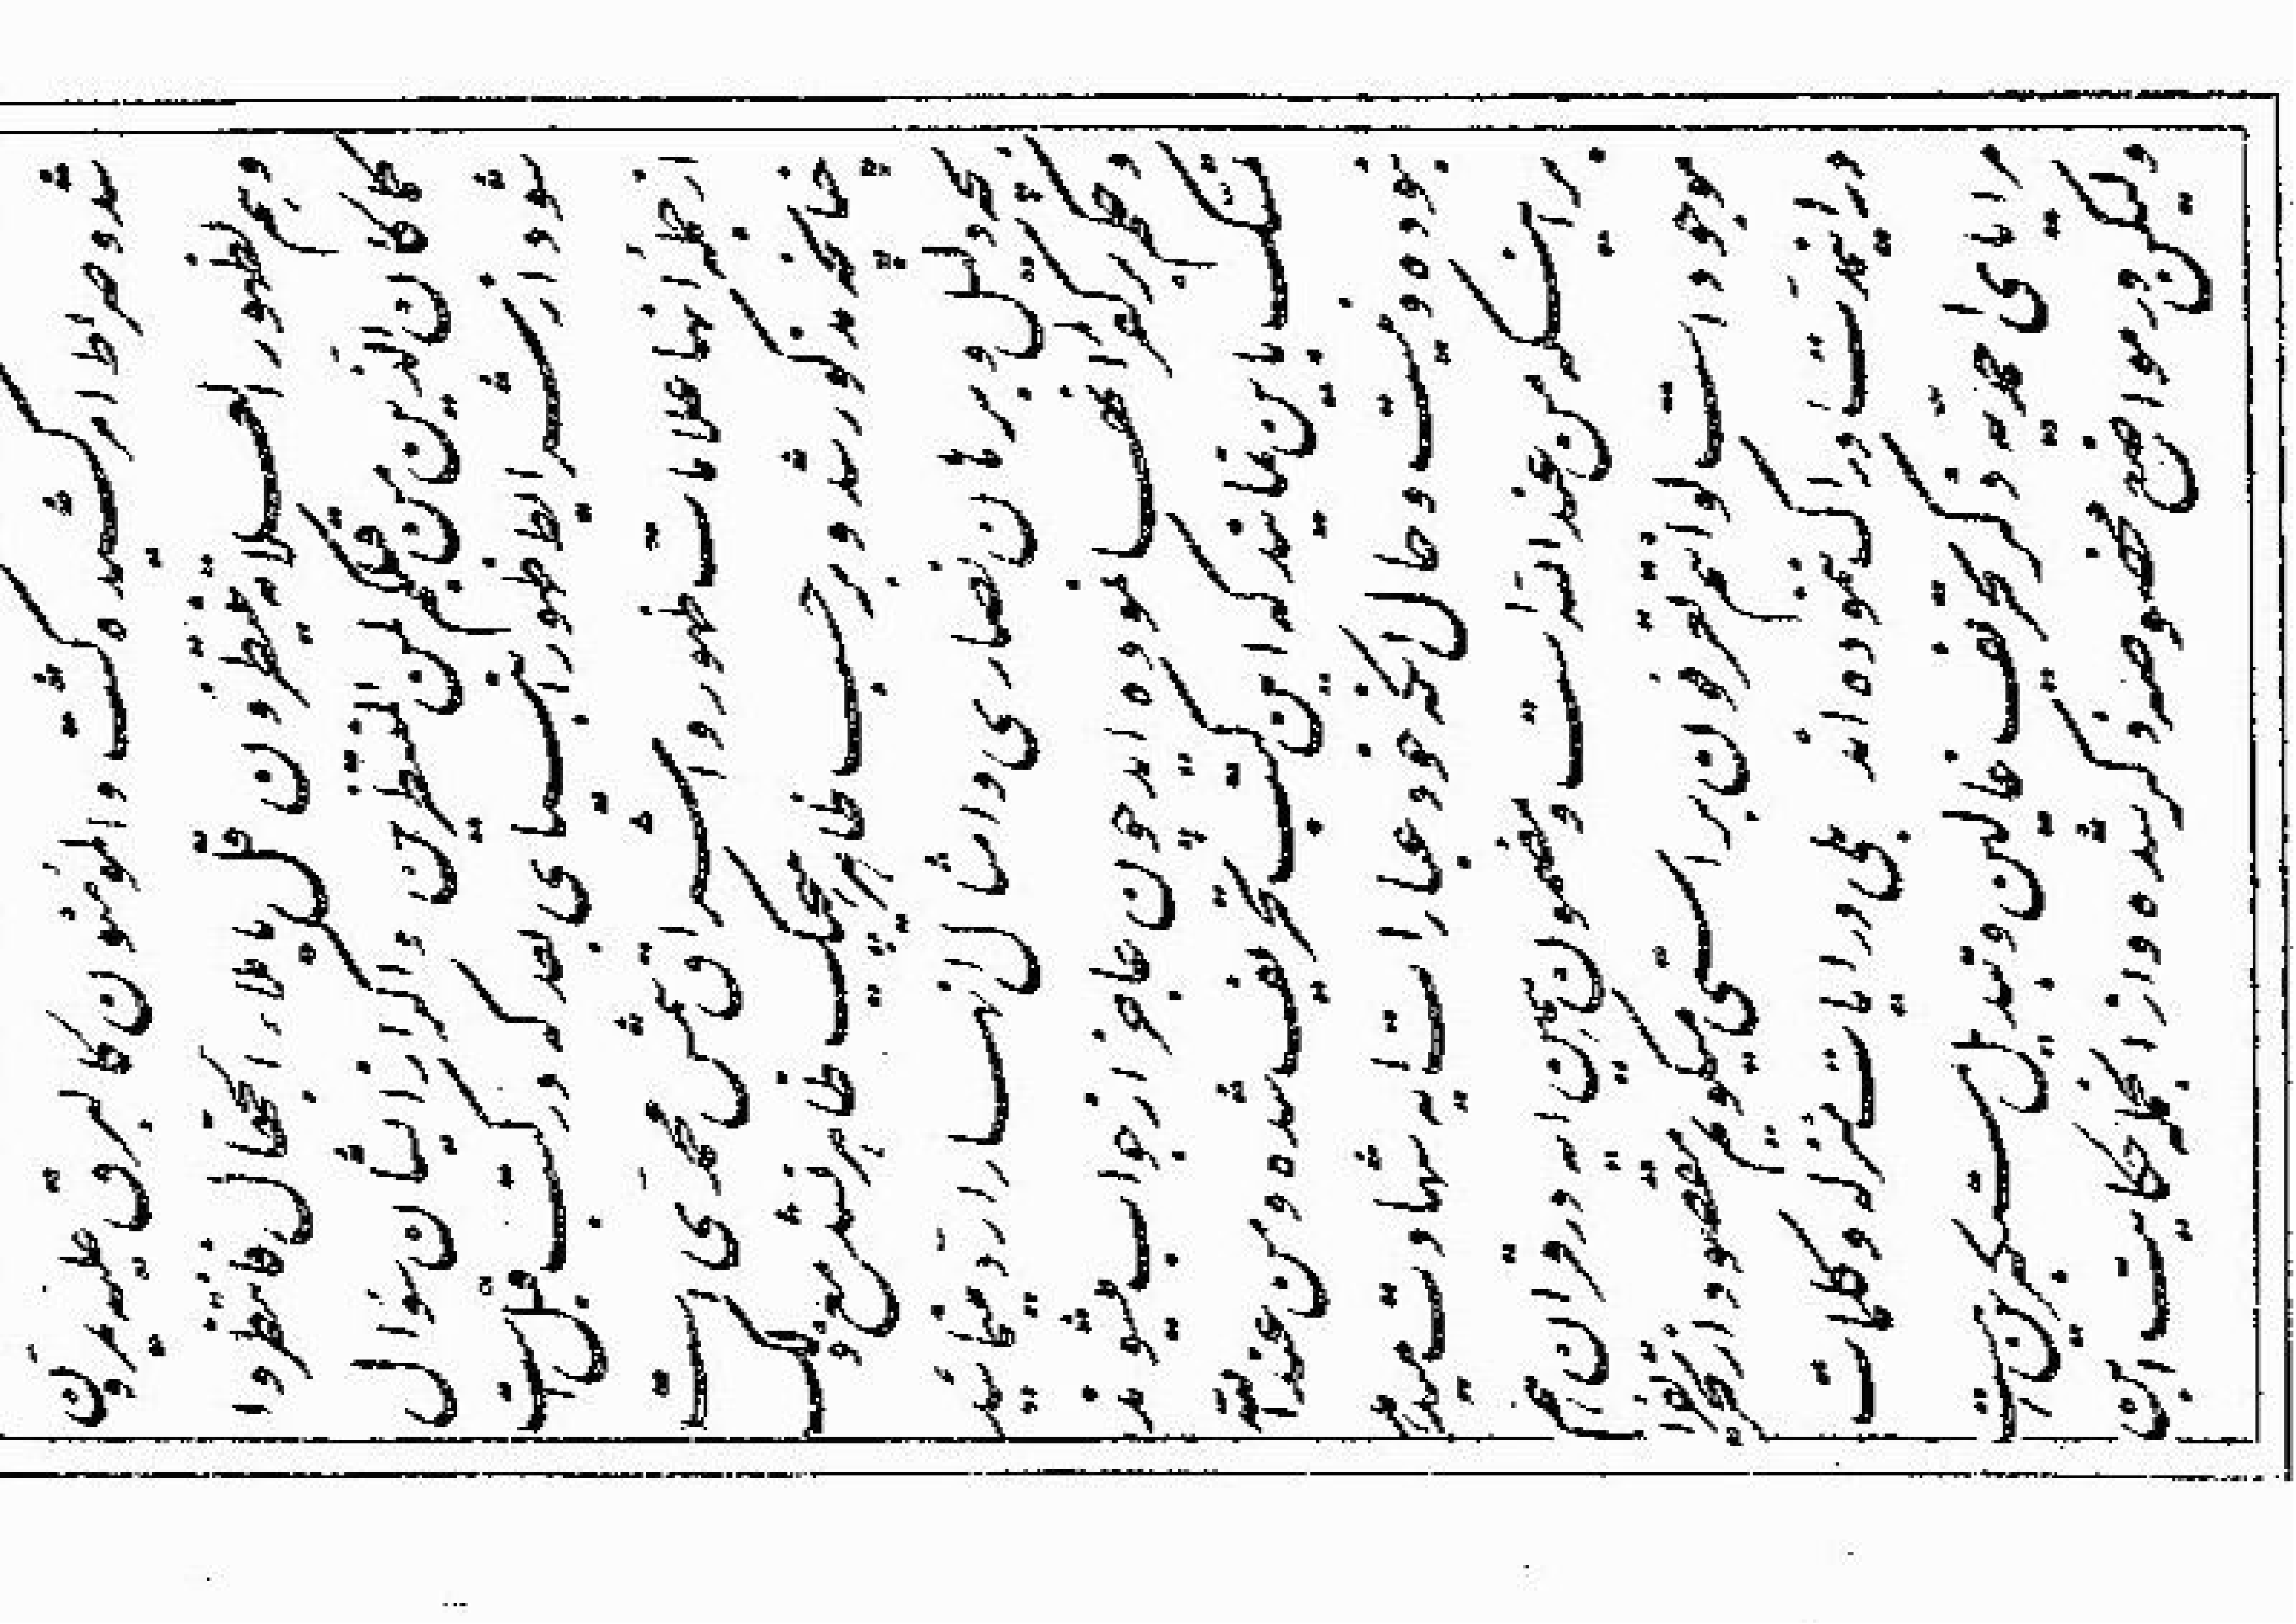 شد و صراط امر کشیده گشت والمؤمنون کالبرق علیه یمرون
و هم لظهور العلامة ینتظرون قل یا ملأ الجهال فانتظروا
کما کان الذین من قبلکم لمن المنتظرین و اگر از ایشان سؤال
شود از شرایط ظهور انبیای بعد که در کتب قبل است
از جمله آنها علامات ظهور و اشراق شمس محمدی است
چنانچه مذکور شد و بر حسب ظاهر هیچیک ظاهر نشد مع ذلک
بچه دلیل و برهان نصاری و امثال آنها را رد مینمائید
و حکم بر کفر آنها نموده اید چون عاجز از جواب میشوند
تمسک باین نمایند که این کتب تحریف شده و من عند الله
نبوده و نیست و حال آنکه خود عبارات آیه شهادت میدهد
بر اینکه من عند الله است و مضمون همین آیه در قرآن هم
موجود است لو انتم تعرفون براستی میگویم مقصود از تحریف را
در این مدت ادراک ننموده اند بلی در آیات منزله و کلمات
مرایای احمدیه ذکر تحریف عالین و تبدیل مستکبرین هست
ولیکن در مواضع مخصوصه ذکر شده و از آنجمله حکایت ابن